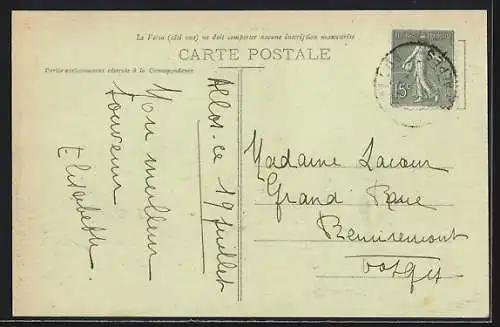 Le Verso (côté vue) ne doit comporter aucune inscription manuscrite
CARTE POSTALE
Partie exclusivement réservée à la Correspondance
Allos. ce 19 juillet
Mon meilleur
souvenir
Elisabeth.
15c
Madame Lacour
Grand Rue
Remiremont
Vosges